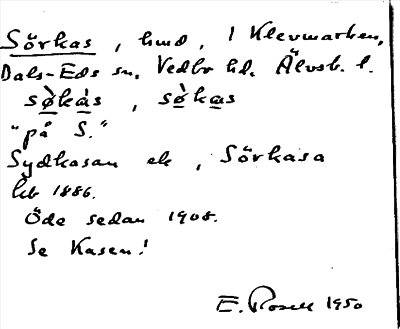 Sörkas, hmd, 1 Klevmarken,
Dals-Eds sn, Vedbo hd. Älvsb. l.
sø̀kàs, sø̀kas
"på S."
Sydkasan ek, Sörkasa
hfb 1886.
Öde sedan 1908.
Se Kasen!
E. Rosell 1950